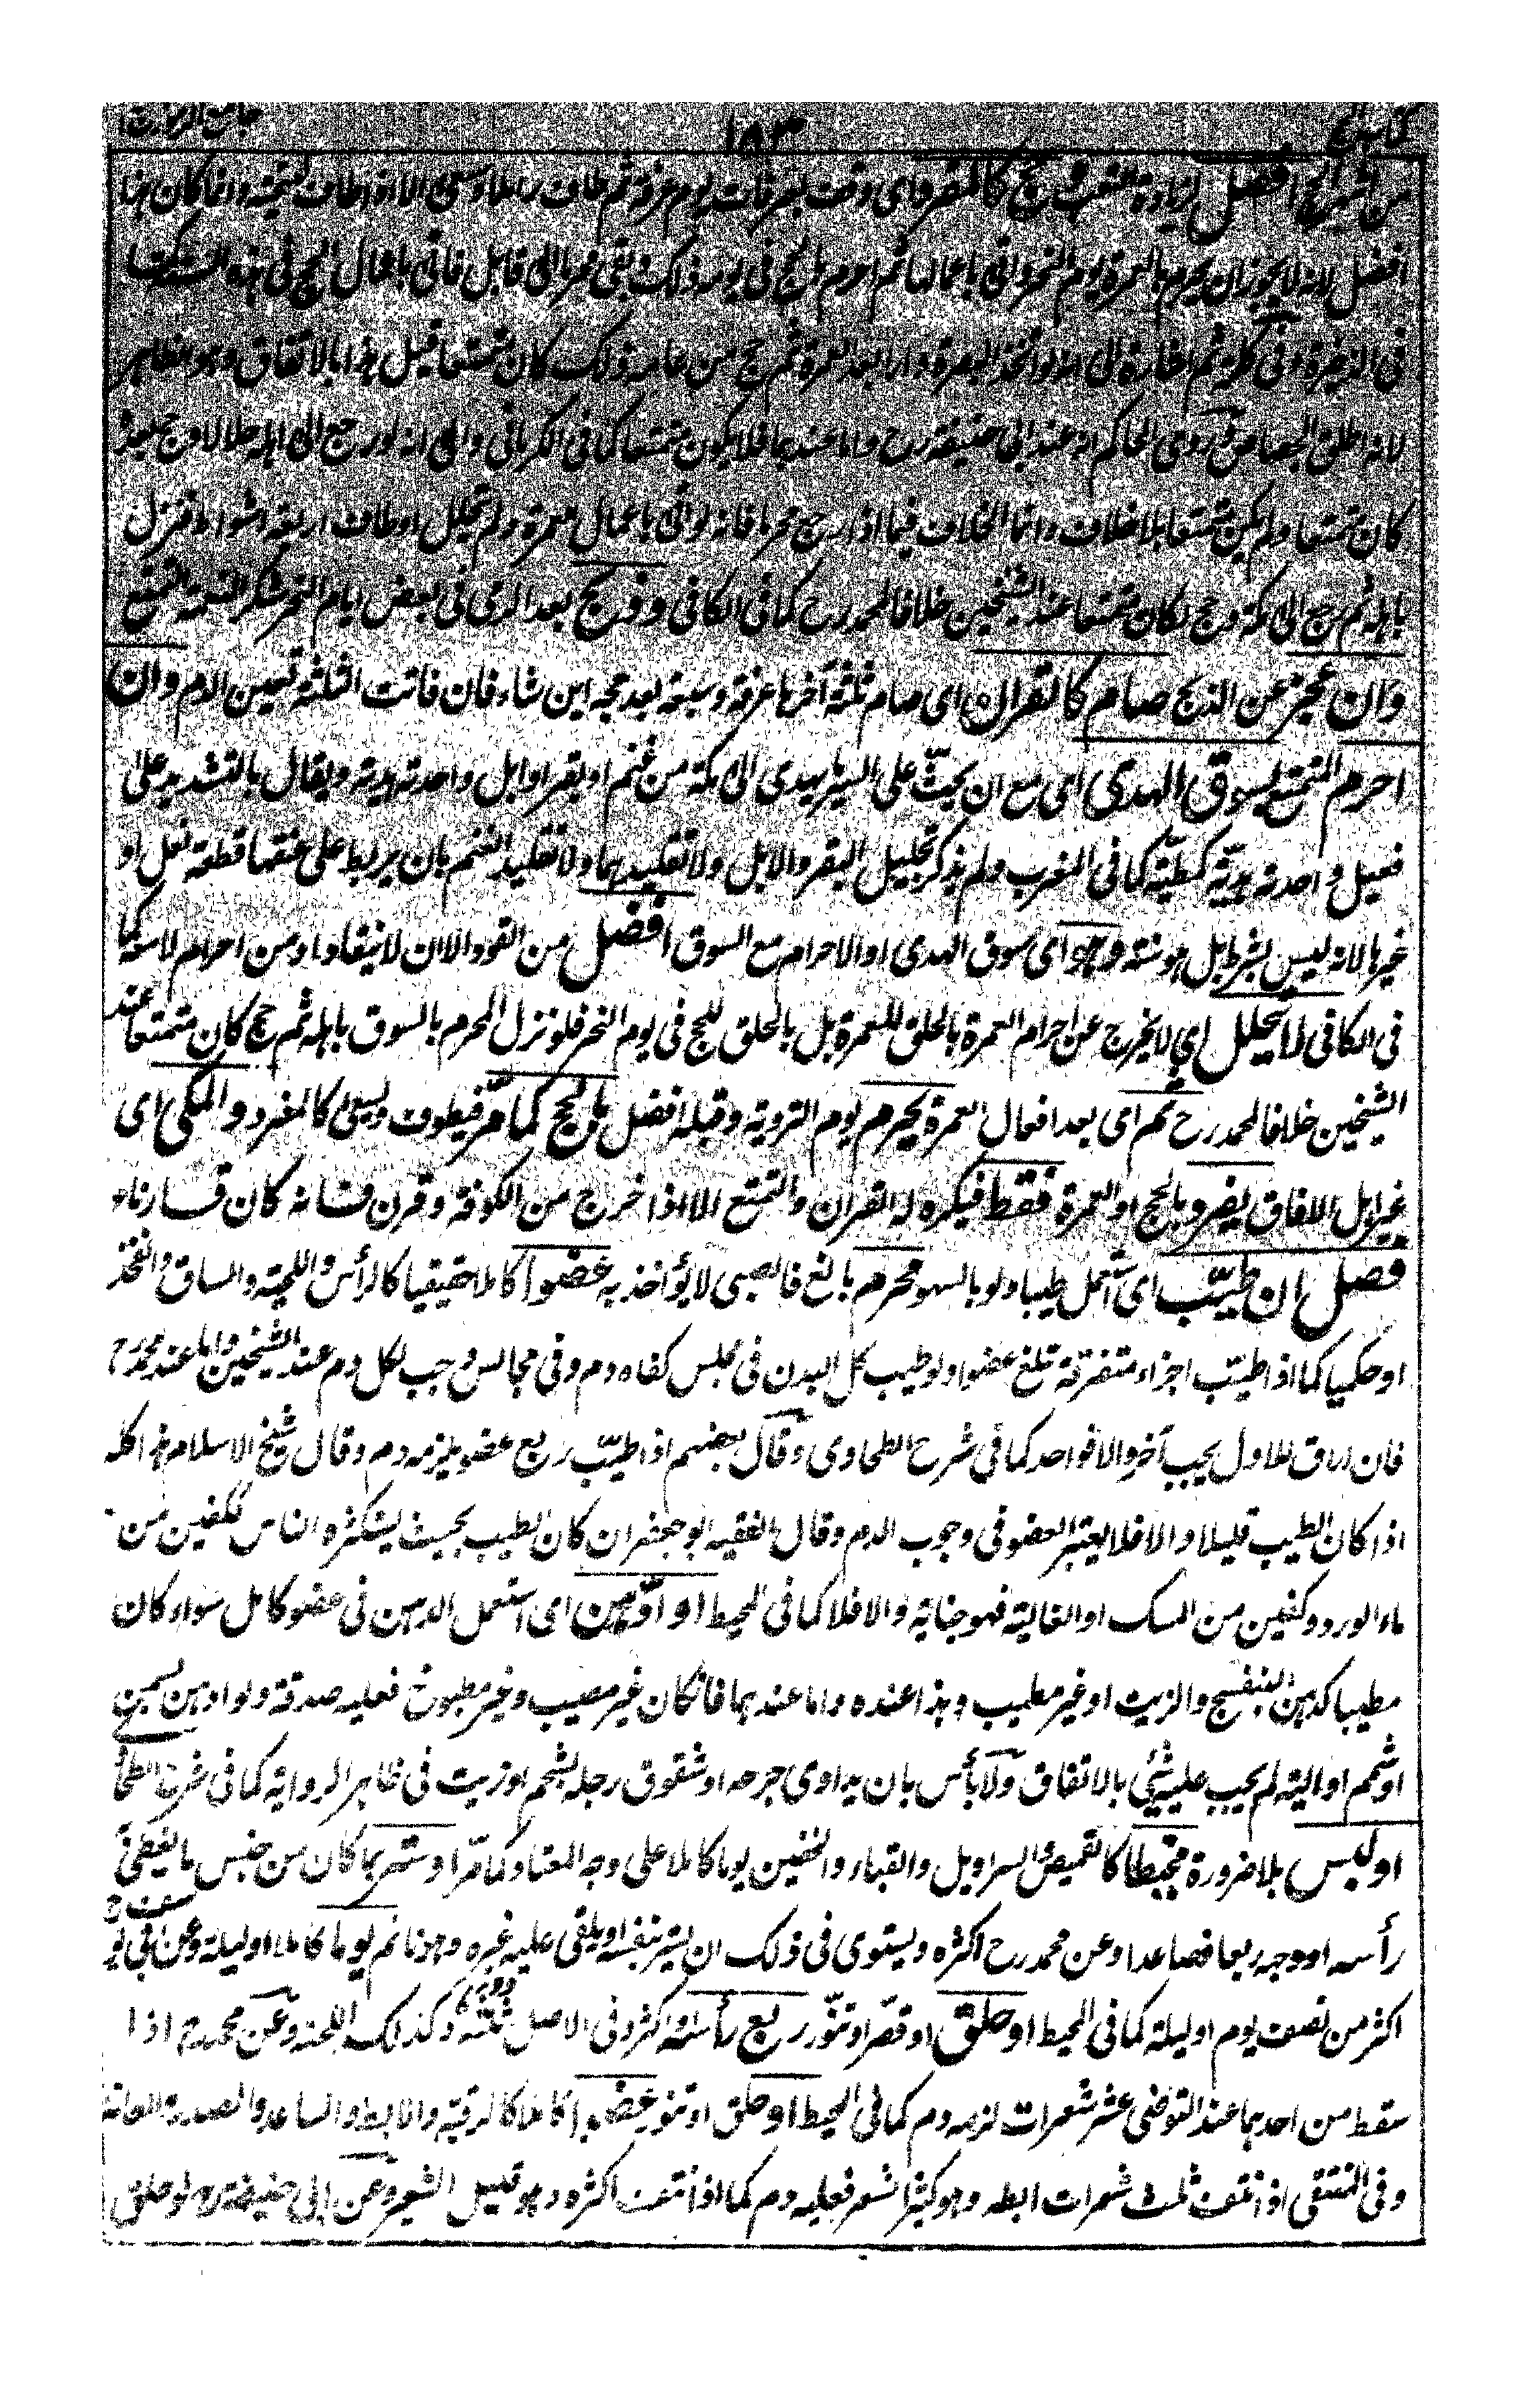 كتاب الحج ١٨٣ جامع الرموز
من اشهر الحج افضل لزيادة وحج كالمفرد اى وقف بعرفات يوم عرفة ثم طاف وسعى الا اذا طاف للتحية وانما كان هذا
افضل لانه لا يجوز ان يحرم بالعمرة يوم النحر واتى باعمالها ثم احرم بالحج فى يومه ذلك وبقى محرما الى قابل فاتى باعمال الحج فى هذه
فى الذخيرة وفى ثم اشارة الى انه لو اتخذ البصرة دارا بعد العمرة ثم حج من عامه ذلك كان متمتعا قيل هذا بالاتفاق وهو
لانه اطلق الجصاص وروى الحاكم انه عند ابى حنيفة رح واما عندهما فلا يكون متمتعا كما فى الكرمانى والى انه لو رجع الى اهله حلالا وحج بعده
كان متمتعا ولم يكن متمتعا بلا خلاف وانما الخلاف فيما اذا رجع محرما فانه لو اتى باعمال العمرة ولم يتحلل او طاف اربعة اشواط فنزل
باهله ثم رجع الى مكة وحج لكان متمتعا عند الشيخين خلافا لمحمد رح كما فى الكافى وذبح بعد الرمى فى بعض ايام النحر شكرا لنعمة التمتع
وان عجز عن الذبح صام كالقران اى صام ثلثة آخرها عرفة وسبعة بعد حجه اين شاء فان فاتت الثلثة تعين الدم وان
احرم المتمتع بسوق الهدى اى مع ان يحث على السير ما يهدى الى مكة من غنم او بقر او ابل واحدته هدية ويقال بالتشديد على
فعيل واحدته هدية كمطية كما فى المغرب ولم يذكر تجليل البقر والابل ولا تقليدهما ولا تقليد الغنم بان يربط على عنقها قطعة نعل او
غيرها لانه ليس بشرط بل هو سنة وهو اى سوق الهدى او الاحرام مع السوق افضل من القود الا ان لا ينقاد ومن احرام لا سوق كما
فى الكافى لا يتحلل اى لا يخرج عن احرام العمرة بالحلق للعمرة بل بالحلق للحج فى يوم النحر فلو نزل المحرم بالسوق باهله ثم حج كان متمتعا عند
الشيخين خلافا لمحمد رح ثم اى بعد افعال العمرة يحرم يوم التروية وقبله افضل بالحج كما مر فيطوف ويسعى كالمفرد والمكى اى
غير اهل الافاق يفرد بالحج او العمرة فقط فيكره له القران والتمتع الا اذا خرج من الكوفة وقرن فانه كان قارنا
فصل ان طيّب اى استعمل طيبا ولو بالسهو محرم بالغ فالصبى لا يؤاخذ به عضوا كاملا حقيقيا كالرأس واللحية والساق والفخذ
او حكميا كما اذا طيّب اجزاء متفرقة تبلغ عضوا ولو طيب كل البدن فى مجلس كفاه دم وفى مجالس وجب لكل دم عند الشيخين واما عند محمد رح
فان اراق للاول يجب آخر والا فواحد كما فى شرح الطحاوى وقال بعضهم اذا طيّب ربع عضو يلزمه دم وقال شيخ الاسلام هذا كله
اذا كان الطيب قليلا والا فلا يعتبر العضو فى وجوب الدم وقال الفقيه ابو جعفر ان كان الطيب بحيث يستكثره الناس ككفين من
ماء الورد وكفين من المسك او الغالية فهو جناية والا فلا كما فى المحيط او ادّهن اى استعمل الدهن فى عضو كامل سواء كان
مطيبا كدهن البنفسج والزيت او غير مطيب وهذا عنده واما عندهما فان كان غير مطيب وغير مطبوخ فعليه صدقة ولو ادهن بسمن
او شحم او الية لم يجب عليه شئ بالاتفاق ولا بأس بان يداوى جرحه او شقوق رجله بشحم او زيت فى ظاهر الرواية كما فى شرح الطحا
او لبس بلا ضرورة مخيطا كالقميص والسراويل والقباء والخفين يوما كاملا على وجه المعتاد كما مرّ او ستر بما كان من جنس ما يغطى
رأسه او وجهه ربعا فصاعدا وعن محمد رح اكثره ويستوى فى ذلك ان يستر بنفسه او يلقى عليه غيره وهو نائم يوما كاملا او ليلة وعن ابى يو
سف رح
اكثر من نصف يوم او ليلة كما فى المحيط او حلق او قصّر او تنوّر ربع رأسه او اكثره وفى الاصل ثلثه وكذلك اللحية وعن محمد رح اذا
سقط من احدهما عند التوضى عشر شعرات لزمه دم كما فى المحيط او حلق او تنور عضوا كاملا كالرقبة والابط والساعد والصدر والعانة
وفى المنتقى اذا نتف ثلث شعرات ابطه وهو كثير الشعر فعليه دم كما اذا نتف اكثره وهو قليل الشعر وعن ابى حنيفة رح لو حلق